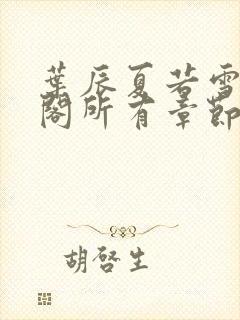 葉辰夏若雪
閣所有章節
胡啓生